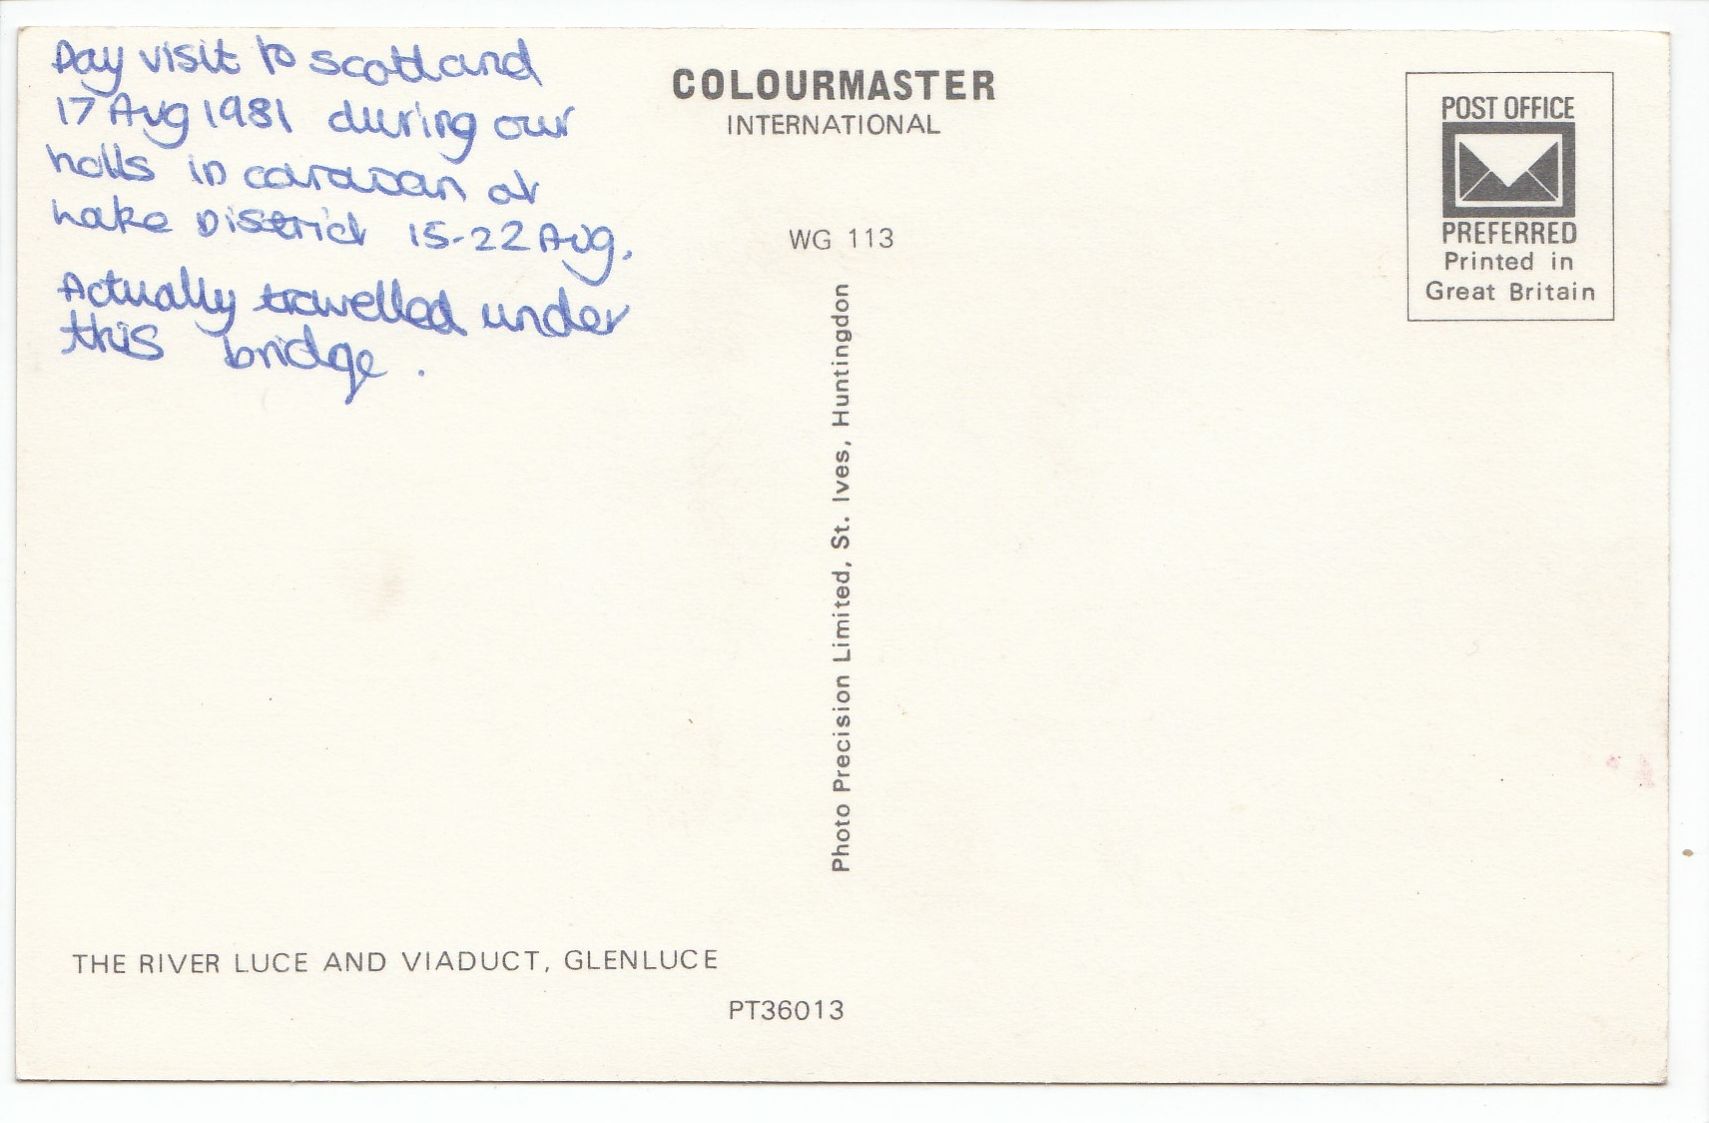 Day visit to scotland
17 Aug 1981 during our
holls in caravan at
Lake District 15-22 Aug.
Actually travelled under
this bridge.
COLOURMASTER
INTERNATIONAL
WG 113
Photo Precision Limited, St. Ives, Huntingdon
POST OFFICE
PREFERRED
Printed in
Great Britain
THE RIVER LUCE AND VIADUCT, GLENLUCE
PT36013